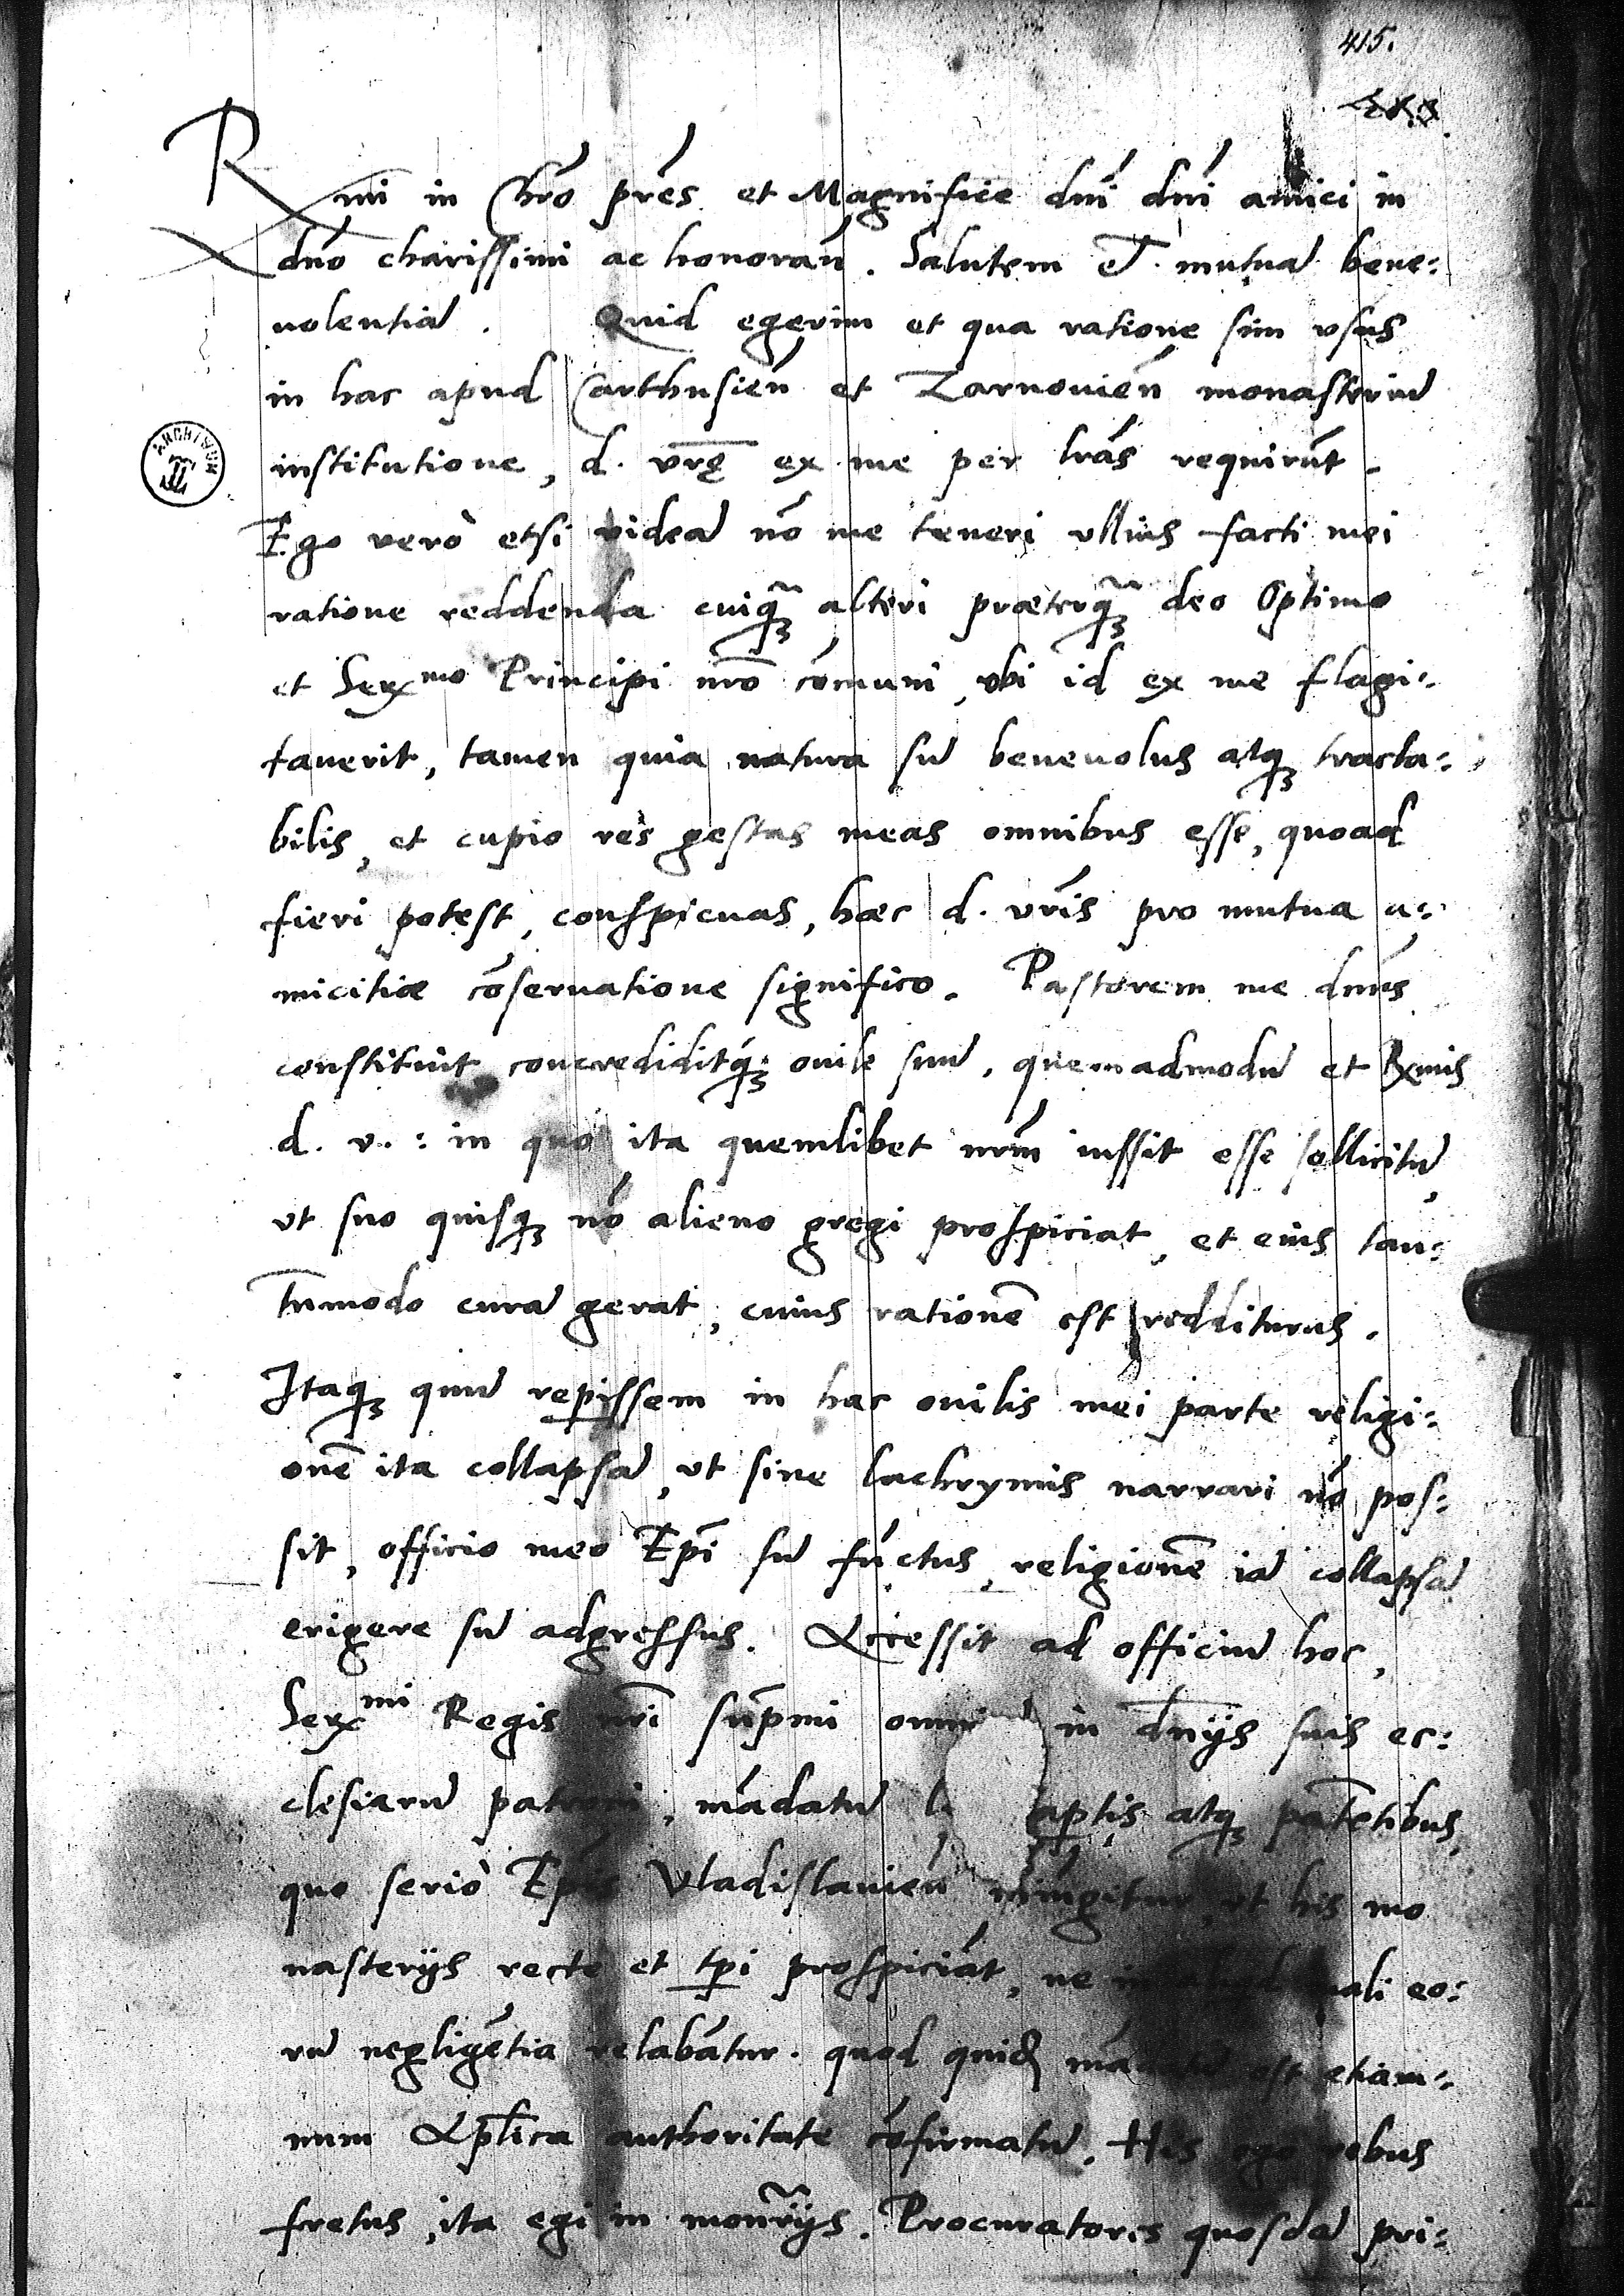 415.
Rmi in Chrō prēs et Magnifice dnī dnī amici in
dnō charissimi ac honoran̄. Salutem et mutuā bene:
uolentiā. Quid egerim et qua ratione sim vsus
in hac apud Carthusien̄ et Zarnouien̄ monasteriū
institutione, d. vrę ex me per lrās requirūt.
Ego verò etsi videā nō me teneri vllius facti mei
ratione reddenda cuiq̃ȝ alteri præterq̃ȝ deo Optimo
et Serx^mo Principi nrō cōmuni, vbi id ex me flagi:
tauerit, tamen quia natura sū beneuolus atqȝ tracta:
bilis, et cupio res gestas meas omnibus esse, quoad
fieri potest, conspicuas, hæc d. vrīs pro mutua a:
micitiæ cōseruatione significo. Pastorem me dnūs
constituit concrediditqȝ ouile suū, quemadmodū et Rxmis
d. v.: in quo ita quemlibet nrm̄ iussit esse sollicitū,
vt suo quisqȝ nō alieno gregi prospiciat, et eius tan:
tūmodo curā gerat, cuius rationē est redditurus.
Itaqȝ quū repissem in hac ouilis mei parte religi:
onē ita collapsā, vt sine lachrymis narrari nō pos:
sit, officio meo Epī sū fūctus, religionē iā collapsā
erigere sū adgressus. Accessit ad officiū hoc,
Serx^mi Regis nrī sūpmi omniū in dn̄ijs suis ec:
clesiarū patroni, mādatū l aptis atqȝ patētibus,
quo seriò Epīs Vladislauien̄ iniūgitur, vt his mo
nasterijs recte et tpi prospiciāt, ne in mali eo:
rū negligētia relabātur. quod quidē mādatū est etiam:
num Aplica authoritate cōfirmatū. His ego rebus
fretus, ita egi in monr̃ijs. Procuratores quosdā pri:
ARCHIVUM